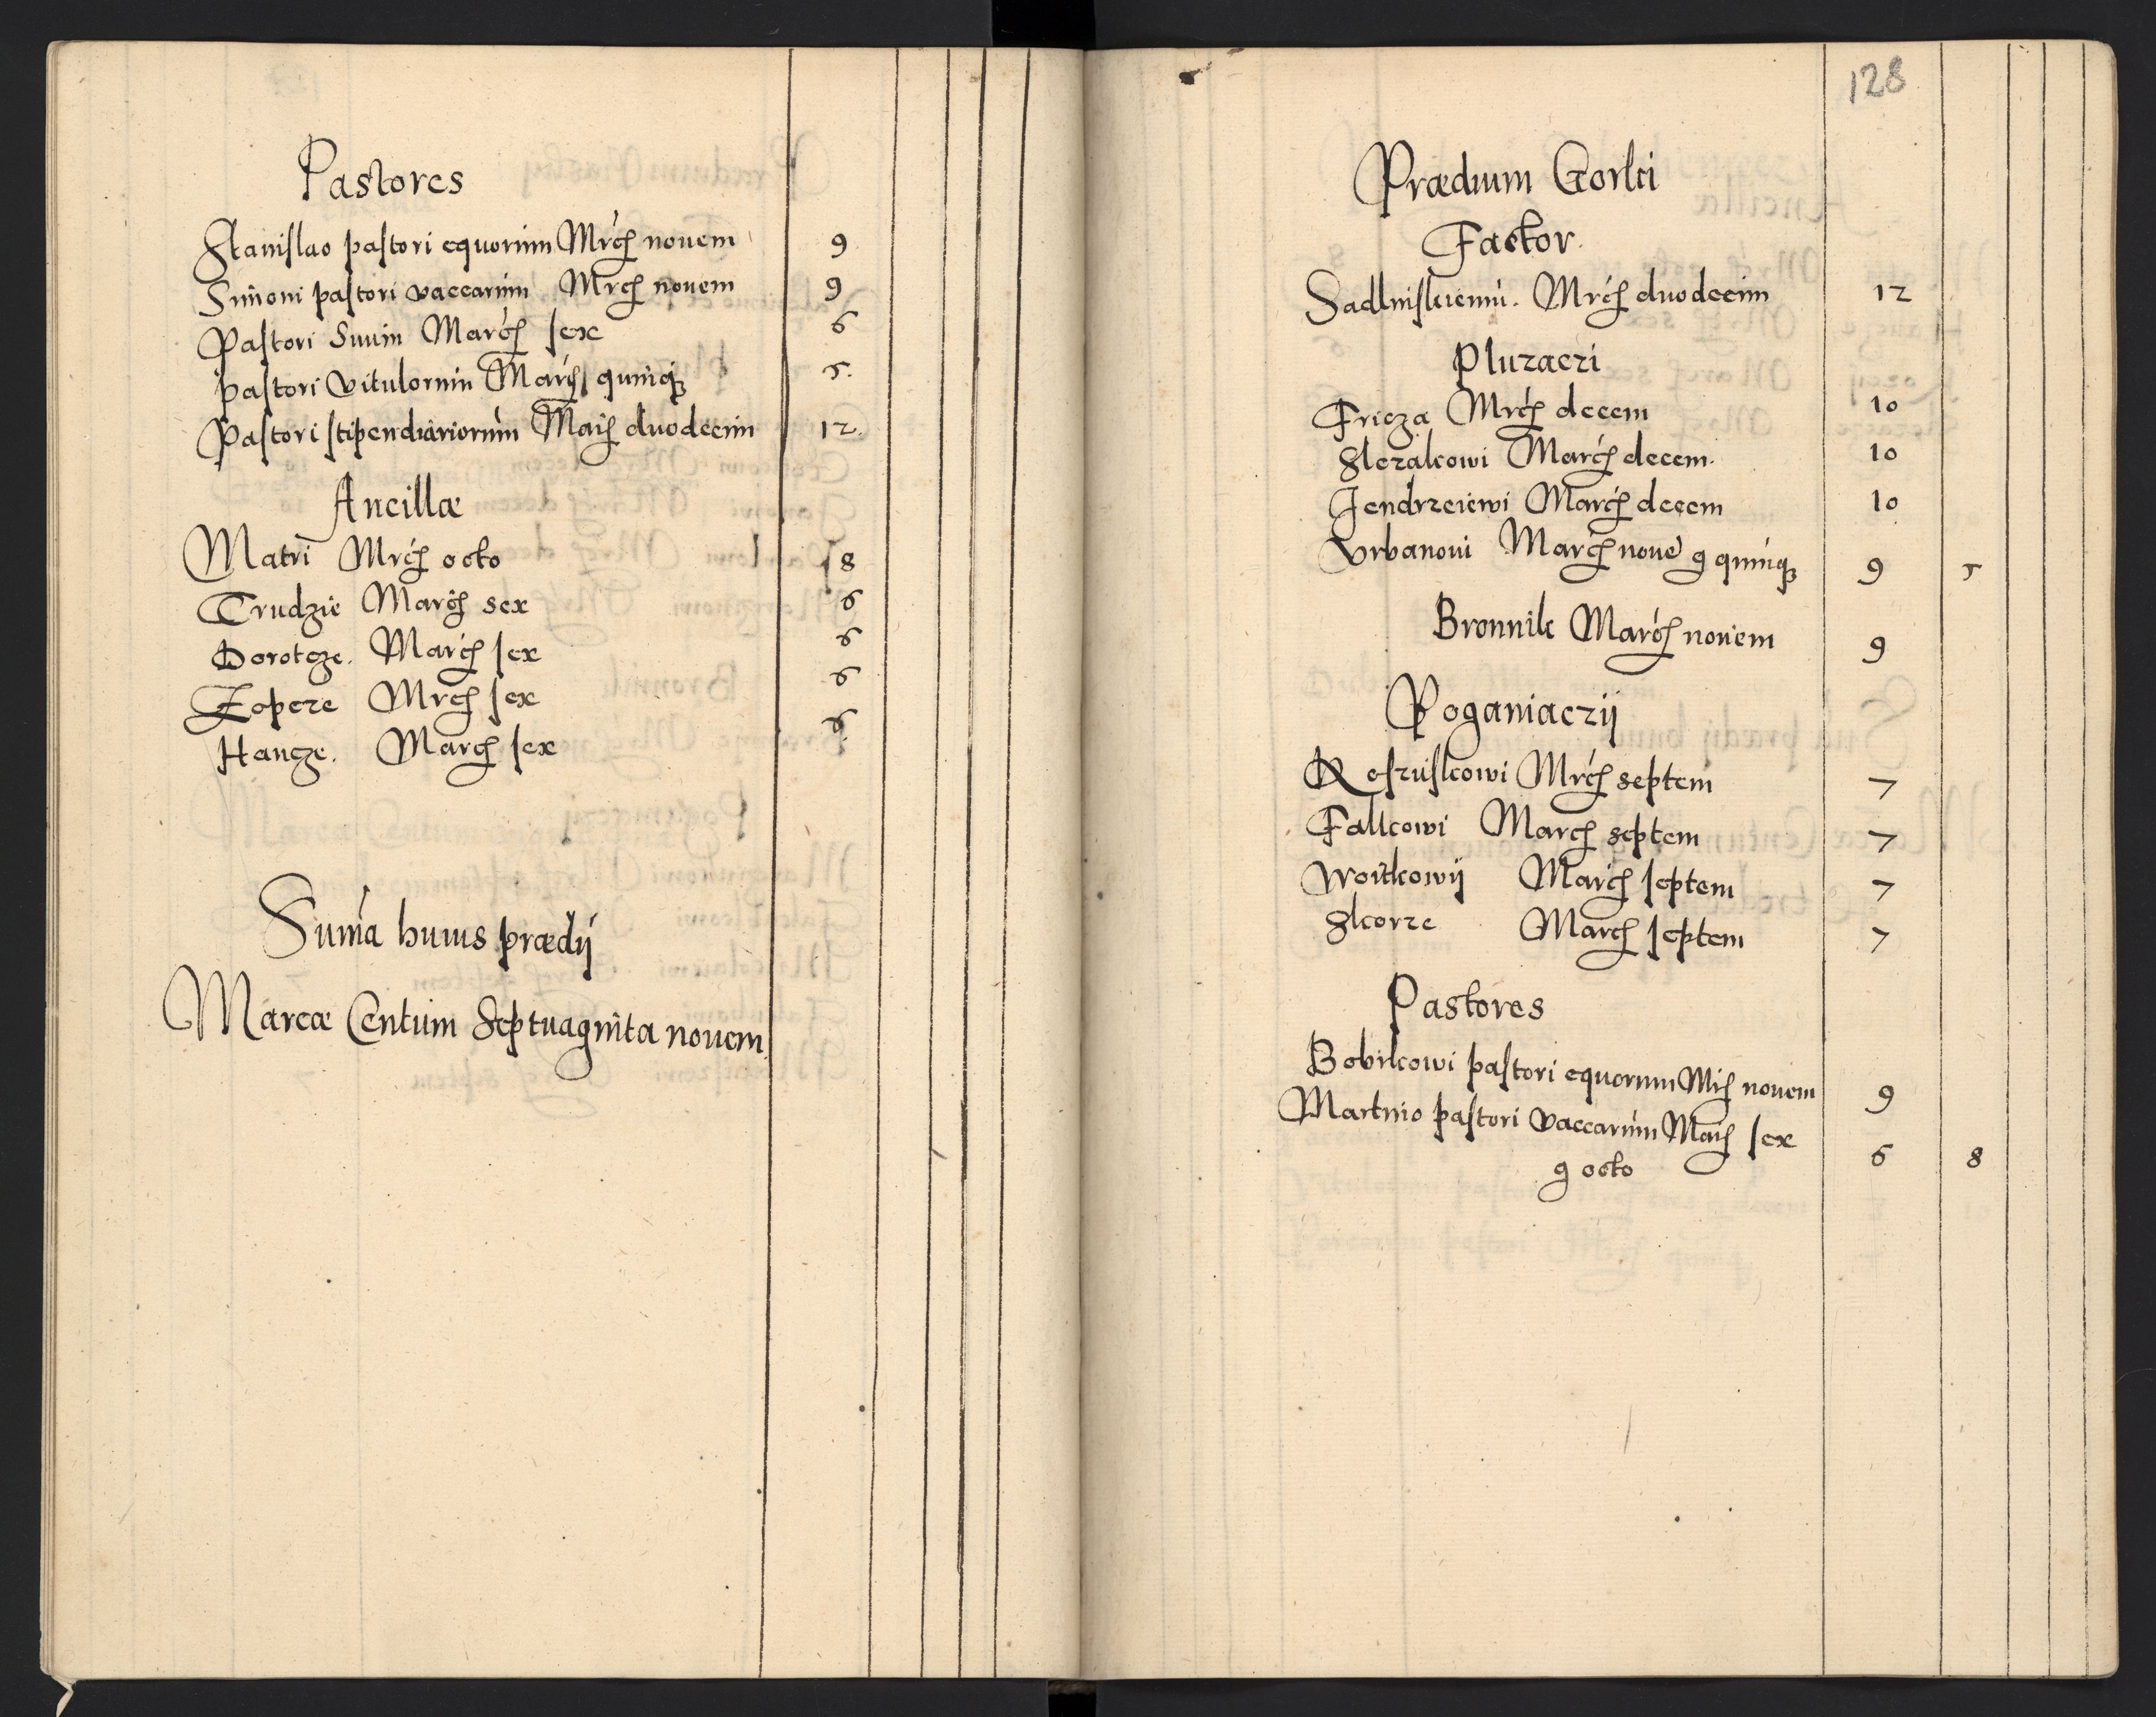 Pastores
Stanislao pastori equorum Mrcɧ nouem 9
Simoni pastori vaccarum Mrcɧ nouem 9
Pastori Suum Marcɧ sex 6
pastori vitulorum Marcɧ quinqꝫ 5.
Pastori stipendiariorum Marɧ duodecim 12.
Ancillæ
Matri Mrcɧ octo 8
Trudzie Marcɧ sex 6
Dorotcze. Marcɧ sex 6
Zopcze Mrcɧ sex 6
Hancze. Marcɧ sex 6
Sum̃a huius prædij
Marcæ Centum Septuaginta nouem
128
Prædium Gorki
Factor
Sadlinskiemu. Mrcɧ duodecim 12
Pluzaczi
Fricza Mrcɧ decem 10
Slezakowi Marcɧ decem. 10
Jendrzeiewi Marcɧ decem 10
Vrbanoui Marcɧ noue g quinqꝫ 9 5
Bronnik Marcɧ nouem 9
Poganiaczij
Koszuskowi Mrcɧ septem 7
Falkowi Marcɧ septem 7
Woitkowij Marcɧ septem 7
Skorze Marcɧ septem 7
Pastores
Bobikowi pastori equorum Mrɧ nouem 9
Martino pastori vaccarum Marɧ sex
g octo 6 8